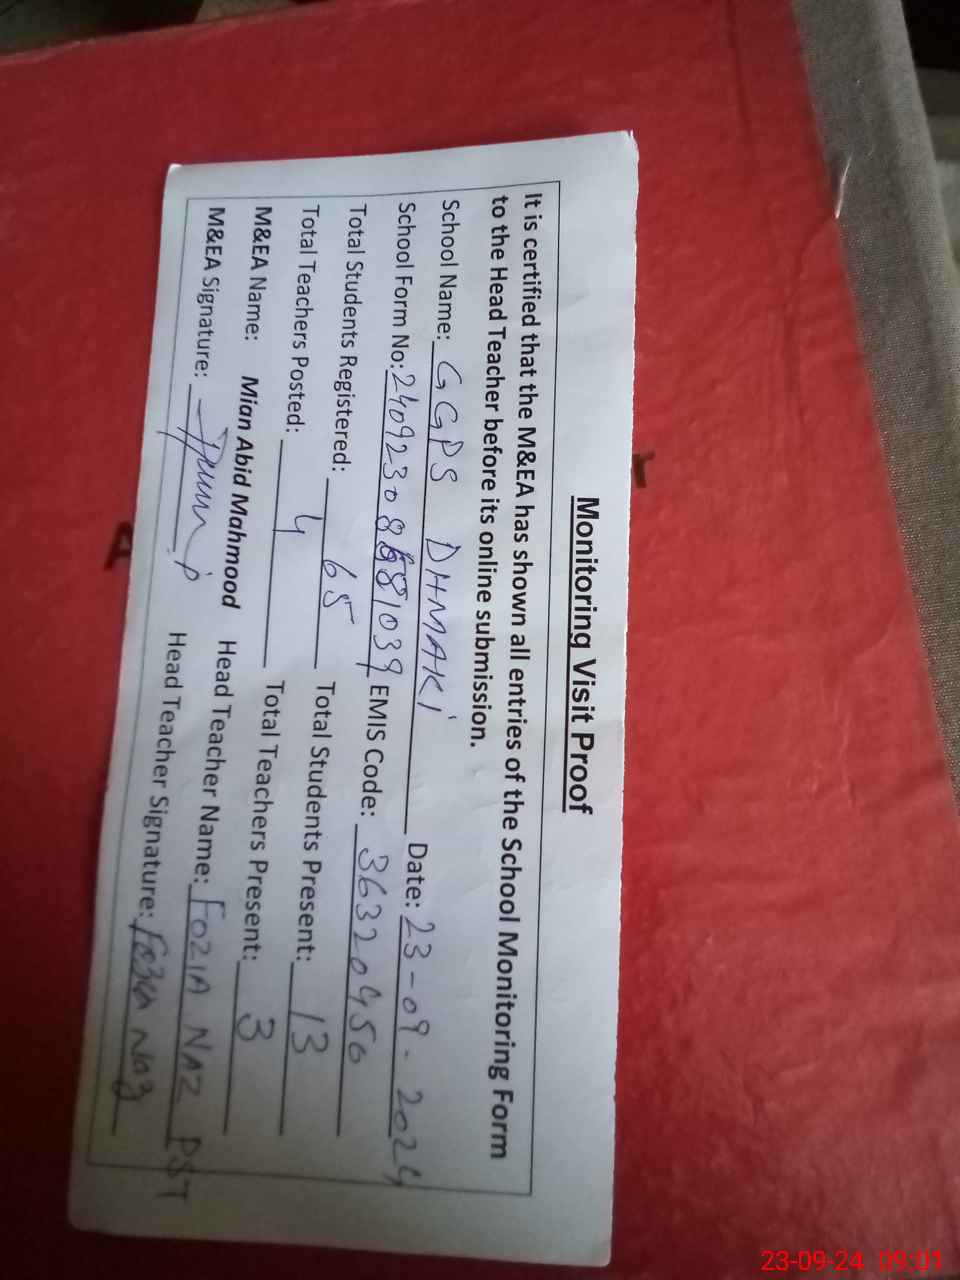 Monitoring Visit Proof
It is certified that the M&EA has shown all entries of the School Monitoring Form
to the Head Teacher before its online submission.
School Name: GGPS DHMAKI Date: 23-09-2024
School Form No: EMIS Code: 36320456
Total Students Registered: 65 Total Students Present: 13
Total Teachers Posted: 4 Total Teachers Present: 3
M&EA Name: Mian Abid Mahmood Head Teacher Name: FOZIA NAZ PST
M&EA Signature: Head Teacher Signature: Fozia Naz
A
23-09-24 09:01